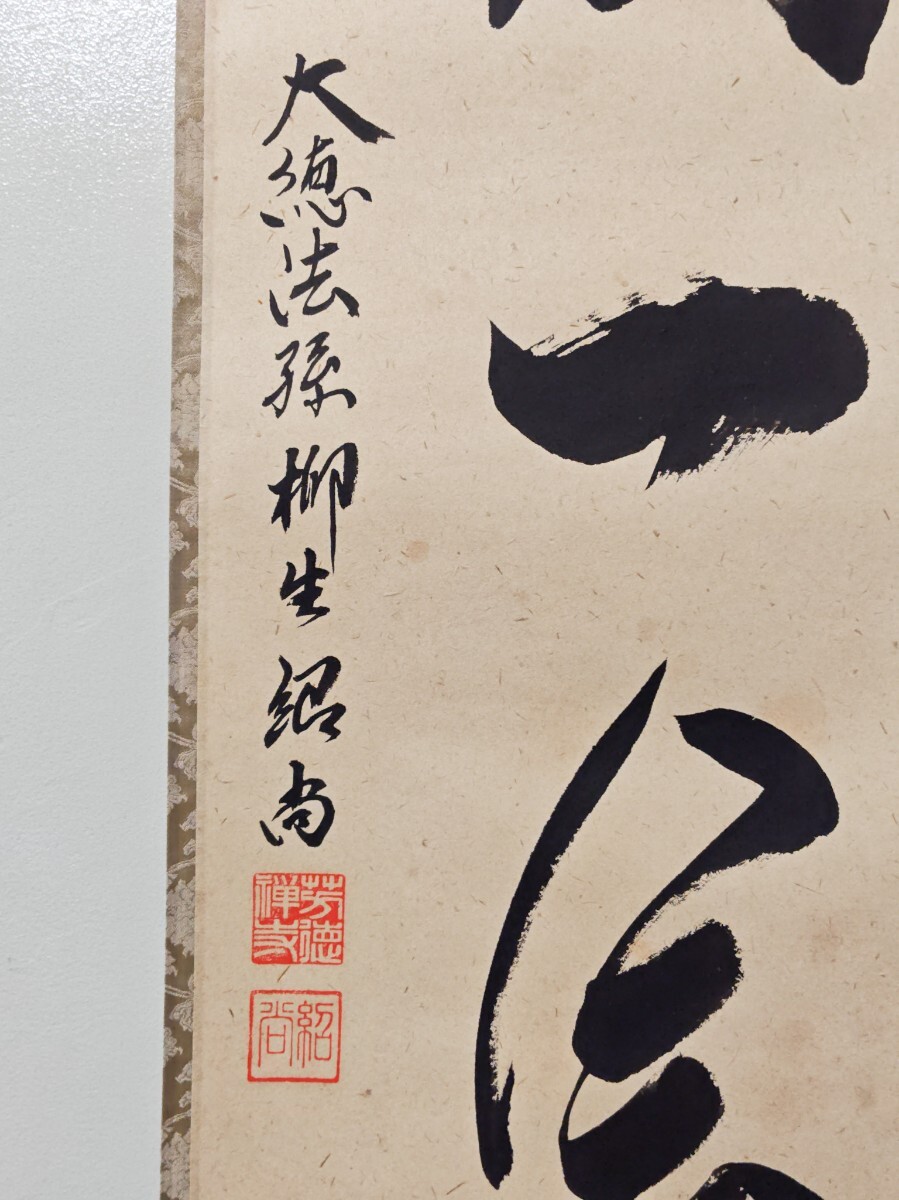 一
大徳法孫柳生紹尚
芳徳禅寺
紹尚